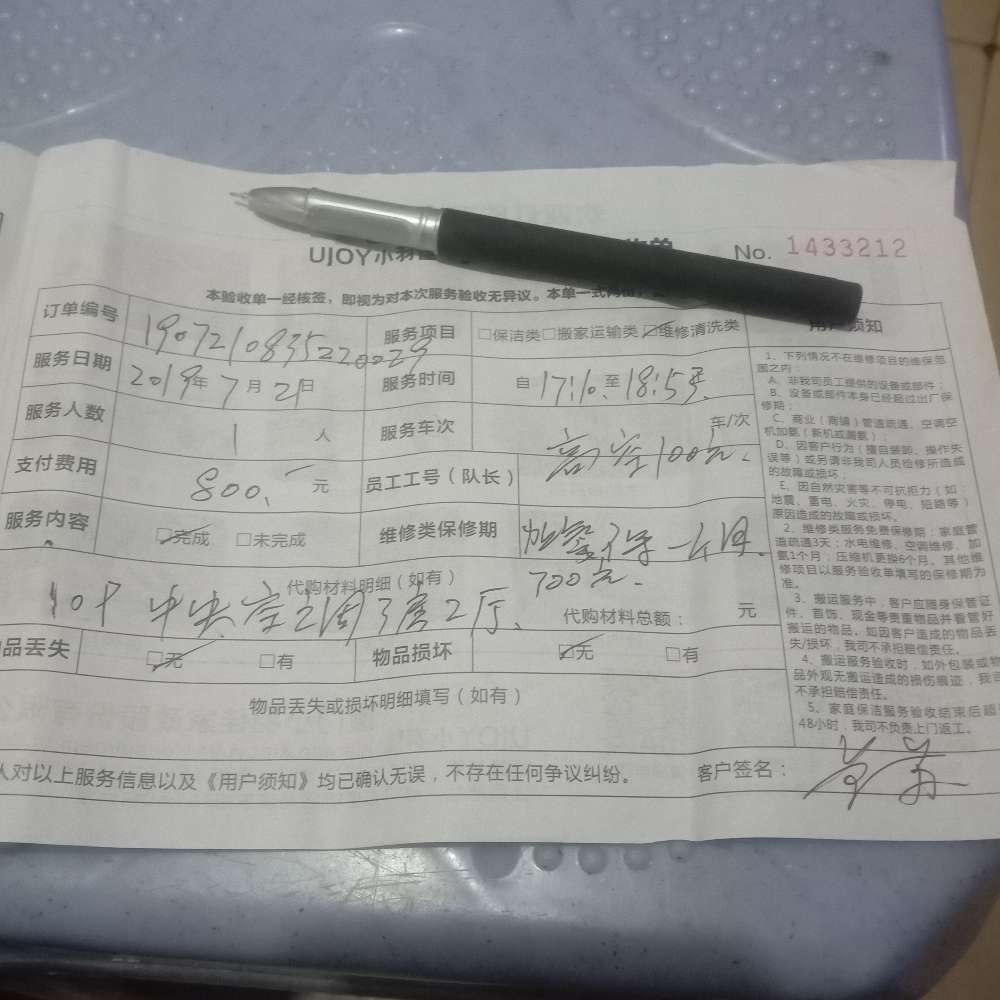 UJOY小羽佳 单 No. 1433212
本验收单一经核签，即视为对本次服务验收无异议。本单一式两份
订单编号 服务项目 □保洁类□搬家运输类☑维修清洗类
服务日期 2019年7月21日 服务时间 自17:10至18:5
服务人数 1人 服务车次 车/次
高空100元.
支付费用 800.元 员工工号（队长）
服务内容 ☑完成 □未完成 维修类保修期 加氨 保一个月.
700元.
代购材料明细（如有）
10P 中央空调3房2厅. 代购材料总额： 元
品丢失 ☑无 □有 物品损坏 ☑无 □有
物品丢失或损坏明细填写（如有）
人对以上服务信息以及《用户须知》均已确认无误，不存在任何争议纠纷。 客户签名：
用户须知
1、下列情况不在维修项目的维保范
围之内：
A、非我司员工提供的设备或部件；
B、设备或部件本身已经超过出厂保
修期；
C、商业（商铺）管道疏通、空调空
机加氨（新机或漏氨）；
D、因客户行为（擅自装卸、操作失
误等）或另请非我司人员检修所造成
的故障或损坏；
E、因自然灾害等不可抗拒力（如：
地震、雷电、火灾、停电、短路等）
原因造成的故障或损坏。
2、维修类服务免费保修期：家庭管
道疏通3天；水电维修、空调维修、加
氨1个月；压缩机更换6个月。其他维
修项目以服务验收单填写的保修期为
准。
3、搬运服务中，客户应随身保管证
件、首饰、现金等贵重物品并看管好
搬运的物品。如因客户造成的物品丢
失/损坏，我司不承担赔偿责任。
4、搬运服务验收时，如外包装或物
品外观无搬运造成的损伤痕迹，我司
不承担赔偿责任。
5、家庭保洁服务验收结束后超
48小时，我司不负责上门返工。